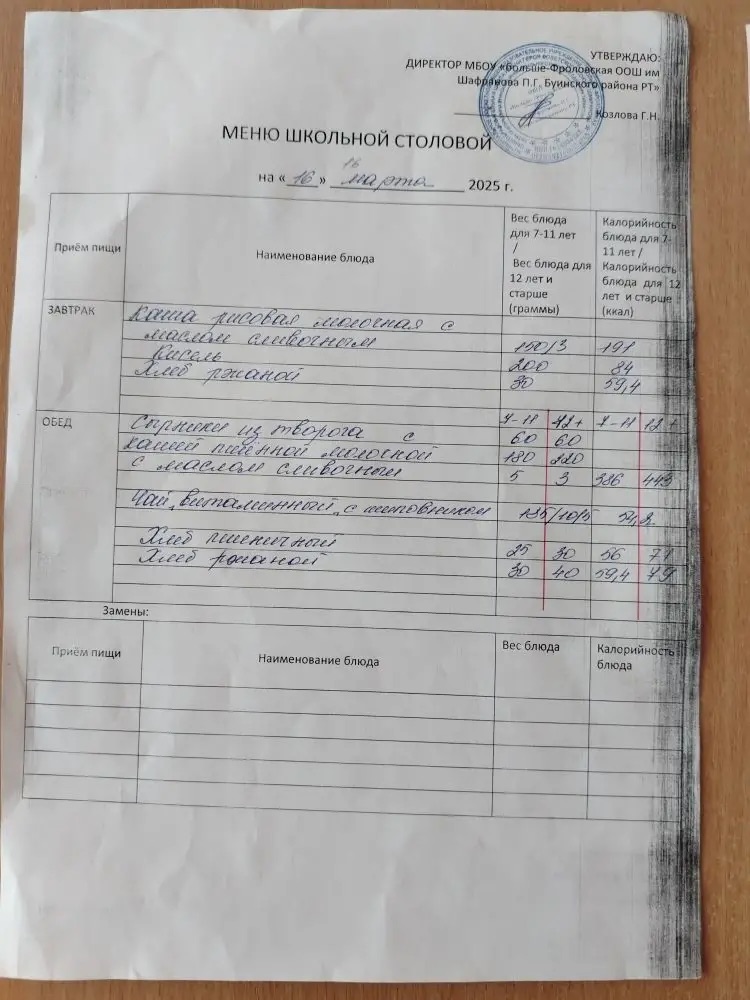 УТВЕРЖДАЮ:
ДИРЕКТОР МБОУ «Больше-Фроловская ООШ им
Шафранова П.Г. Буинского района РТ»
Козлова Г.Н.
МЕНЮ ШКОЛЬНОЙ СТОЛОВОЙ
16
на «16» марта 2025 г.
Приём пищи Наименование блюда Вес блюда для 7-11 лет / Вес блюда для 12 лет и старше (граммы) Калорийность блюда для 7-11 лет / Калорийность блюда для 12 лет и старше (ккал)
ЗАВТРАК Каша рисовая молочная с
маслом сливочным 150/3 191
Кисель 200 84
Хлеб ржаной 30 59,4
ОБЕД 7-11 12+ 7-11 12+
Сырники из творога с 60 60
кашей пшённой молочной 180 220
с маслом сливочным 5 3 386 443
Чай "витаминный" с шиповником 185/10/5 54,2
Хлеб пшеничный 25 30 56 71
Хлеб ржаной 30 40 59,4 79
Замены:
Приём пищи Наименование блюда Вес блюда Калорийность блюда